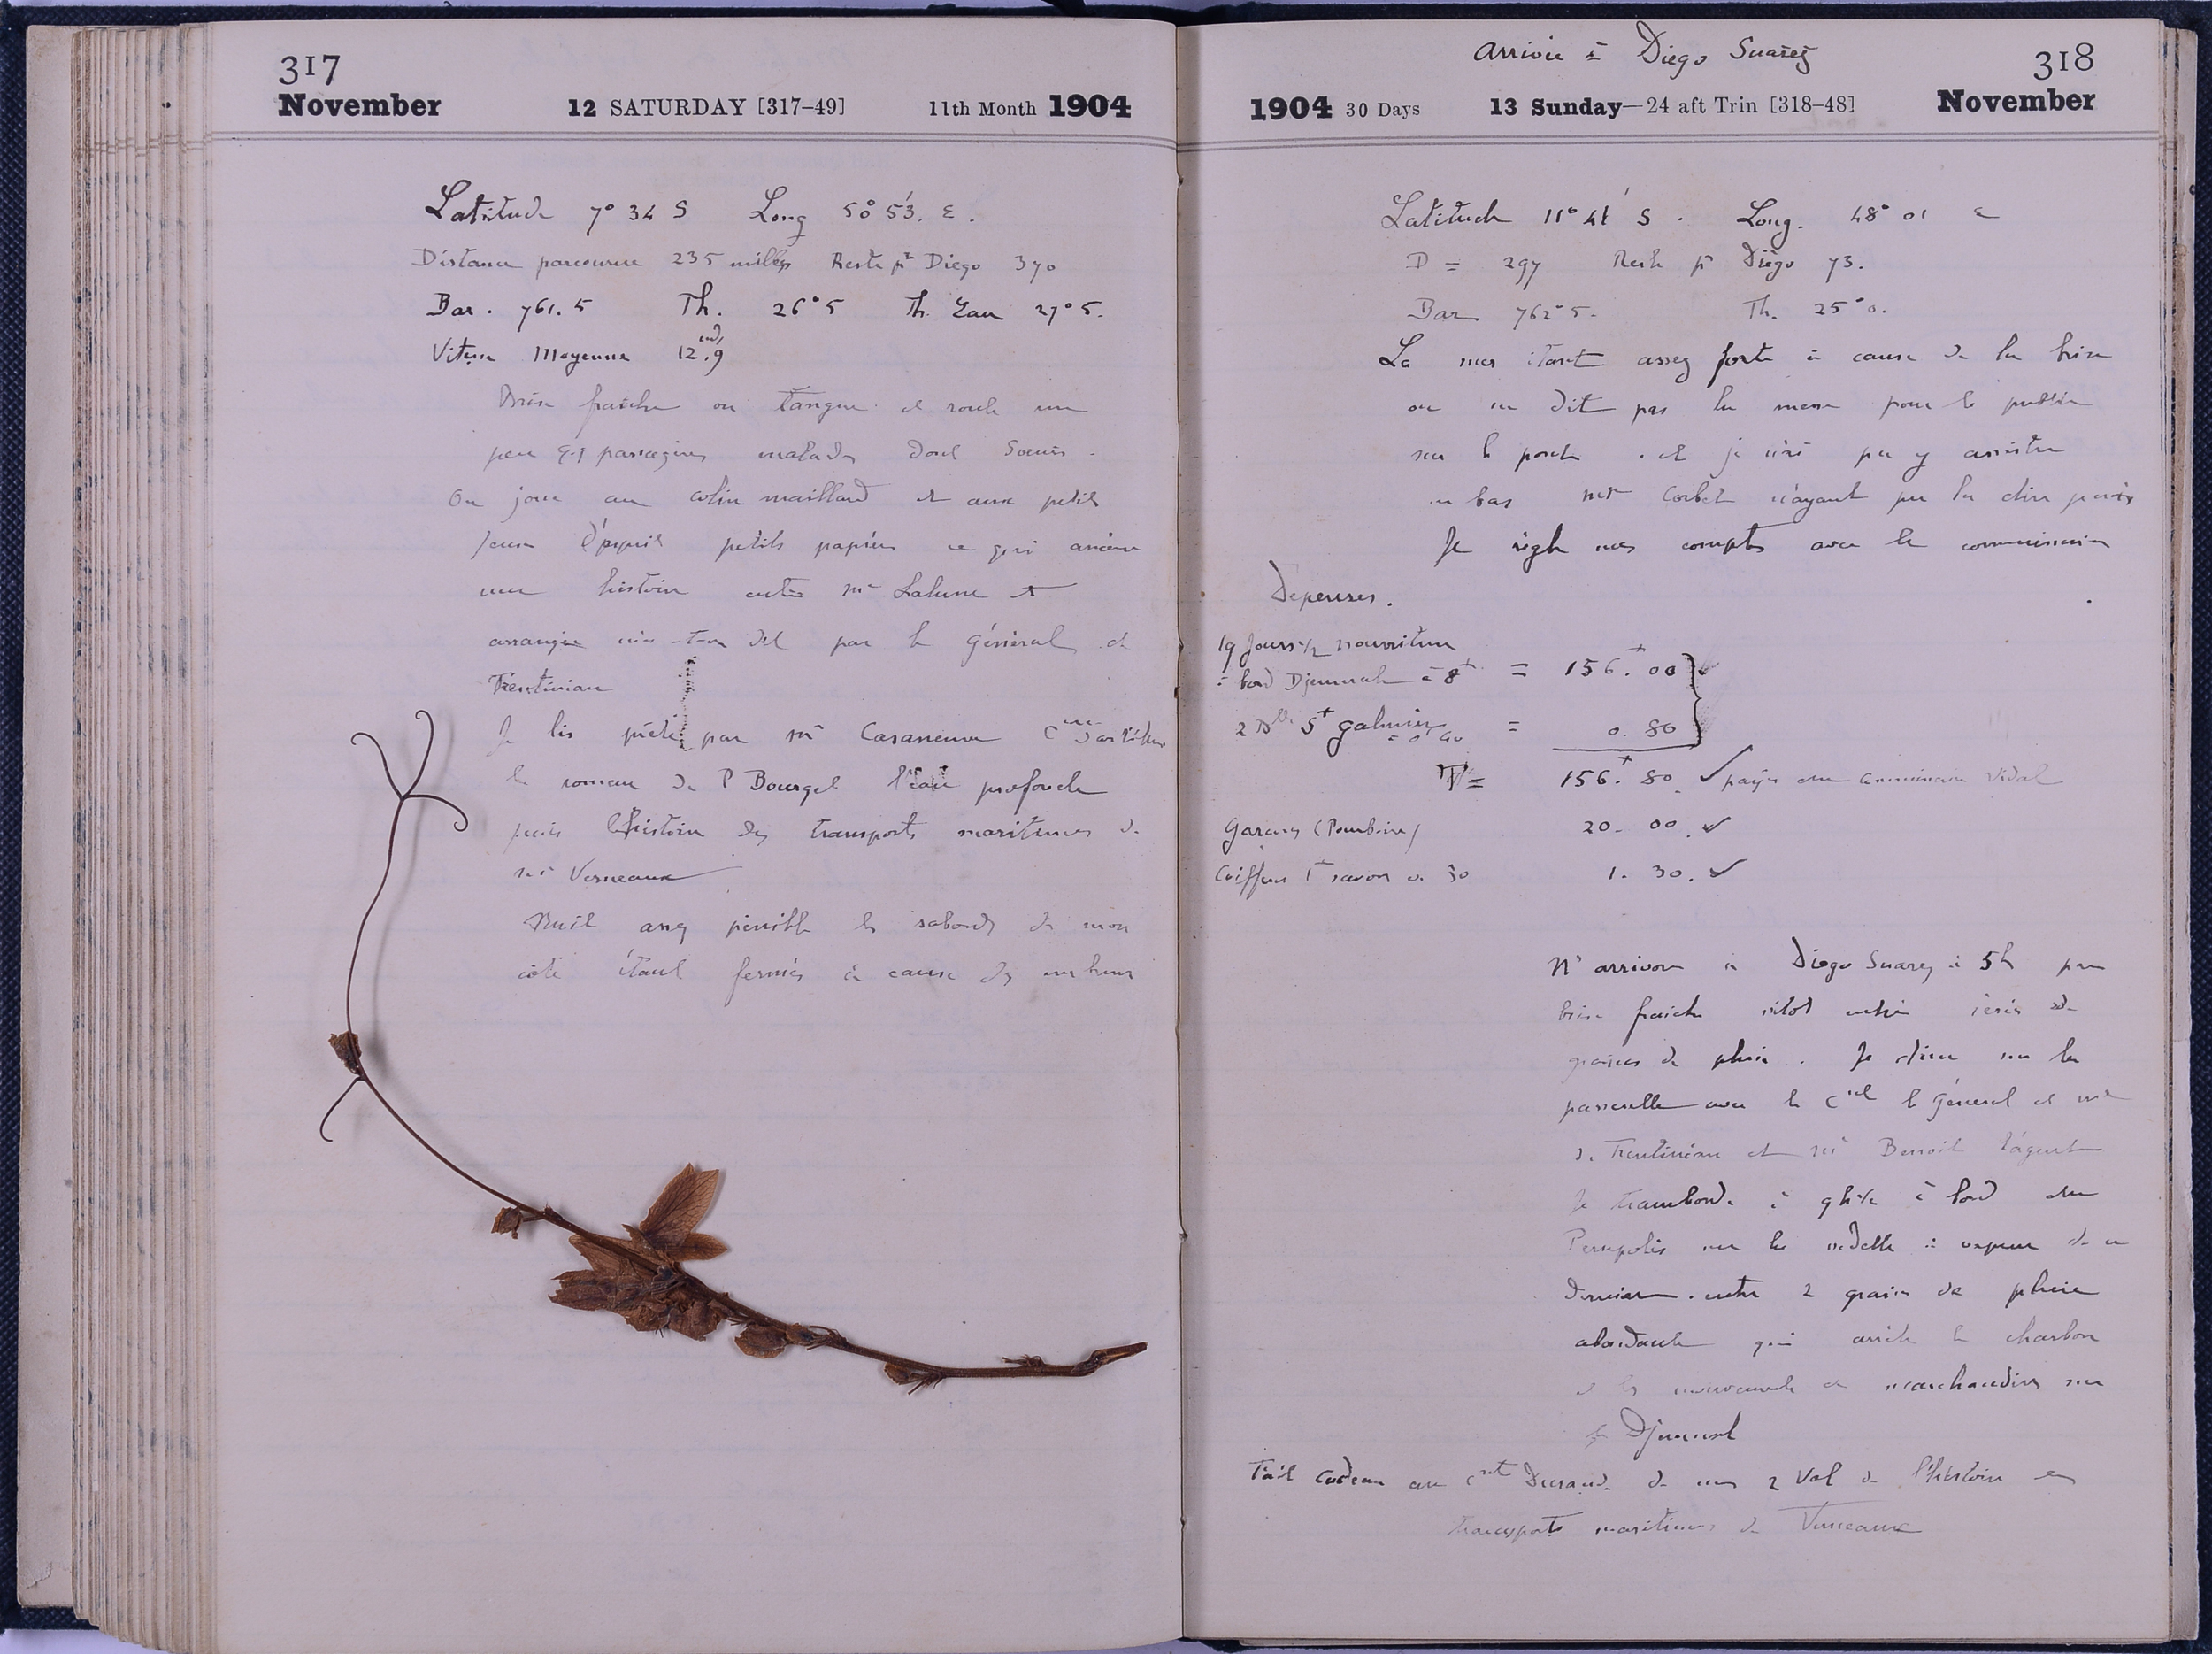 317
November 12 SATURDAY [317–49] 11th Month 1904
Latitude 7° 34 S Long 50° 53'. E.
Distance parcourue 235 milles Reste pr Diego 370
Bar. 761.5 Th. 26°5 Th. Eau 27°5.
Vitesse Moyenne 12.9 nds
Brise fraîche on tangue et roule un
peu qq passagers malades dont Soeurs.
On joue au colin maillard et aux petits
Jeux d'esprit petits papiers ce qui amène
une histoire entre Mr Lalune et
arrangée par le Général de
Trentinian
Je lis prêté par Mr Casaneuve
le roman de P Bourget l'eau profonde
puis l'histoire des transports maritimes de
Mr Verneaux
Nuit assez pénible les sabords de mon
côté étant fermés à cause des embruns
Arrivée à Diego Suarez
318
1904 30 Days 13 Sunday—24 aft Trin [318–48] November
Latitude 11° 41' S. Long. 48° 01 E
D = 297 Reste pr Diégo 73.
Bar 762°5. Th. 25°0.
La mer étant assez forte à cause de la brise
on ne dit pas la messe pour le public
sur le pont. et je n'ai pu y assister
en bas Mgr Corbet n'ayant pu la dire
Je règle mes comptes avec le commissaire
Depenses.
19 Jours 1/2 nourriture
à bord Djemnah à 8f = 156f. 00
2 Blles St Galmier à 0f 40 = 0. 80
T = 156f. 80 payé au commissaire Vidal
Garçons 20. 00
Coiffeur 1f savon 0. 30 1. 30.
Ns arrivons à Diego Suarez à 5h par
brise fraîche sitôt entré série de
graines de pluie. Je dine sur la
passerelle avec le Ct le Général et Me
de Trentinian et Mr Benoit l'agent
Je transborde à 9h 1/2 à bord du
Persepolis sur la vedette à vapeur de ce
dernier. entre 2 grains de pluie
abondante qui arrête le charbon
et les mouvements de marchandises sur
le Djemnah
Fait cadeau au Ct Durand de mes 2 Vol de l'histoire des
transports maritimes de Verneaux